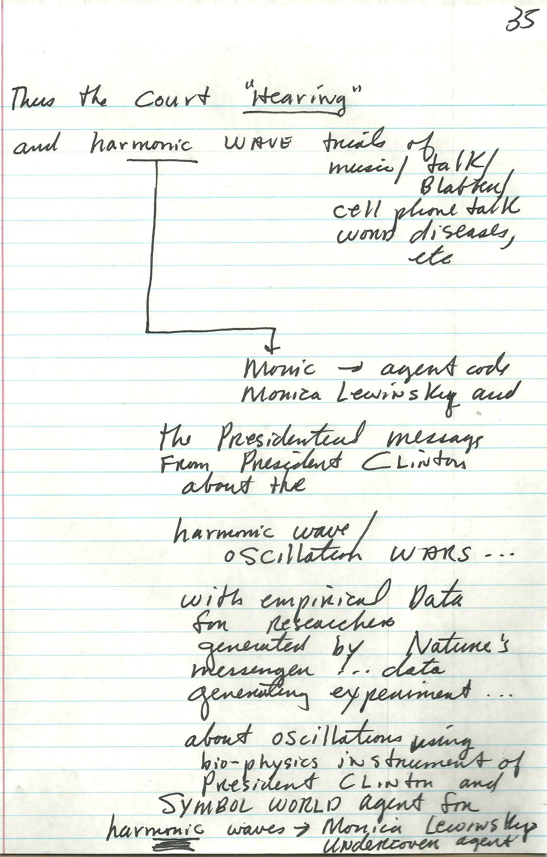 35
Thus the Court "Hearing"
and harmonic WAVE trials of
music/ talk/
cell phone talk
word diseases,
etc
Monic → agent code
Monica Lewinsky and
the Presidential message
From President CLinton
about the
harmonic wave/
OSCillation WARS ...
with empirical Data
for researchers
generated by Nature's
messenger ... data
generating experiment ...
about oscillations using
bio-physics instrument of
President CLinton and
SYMBOL WORLD agent for
harmonic waves → Monica Lewinsky
Undercover agent